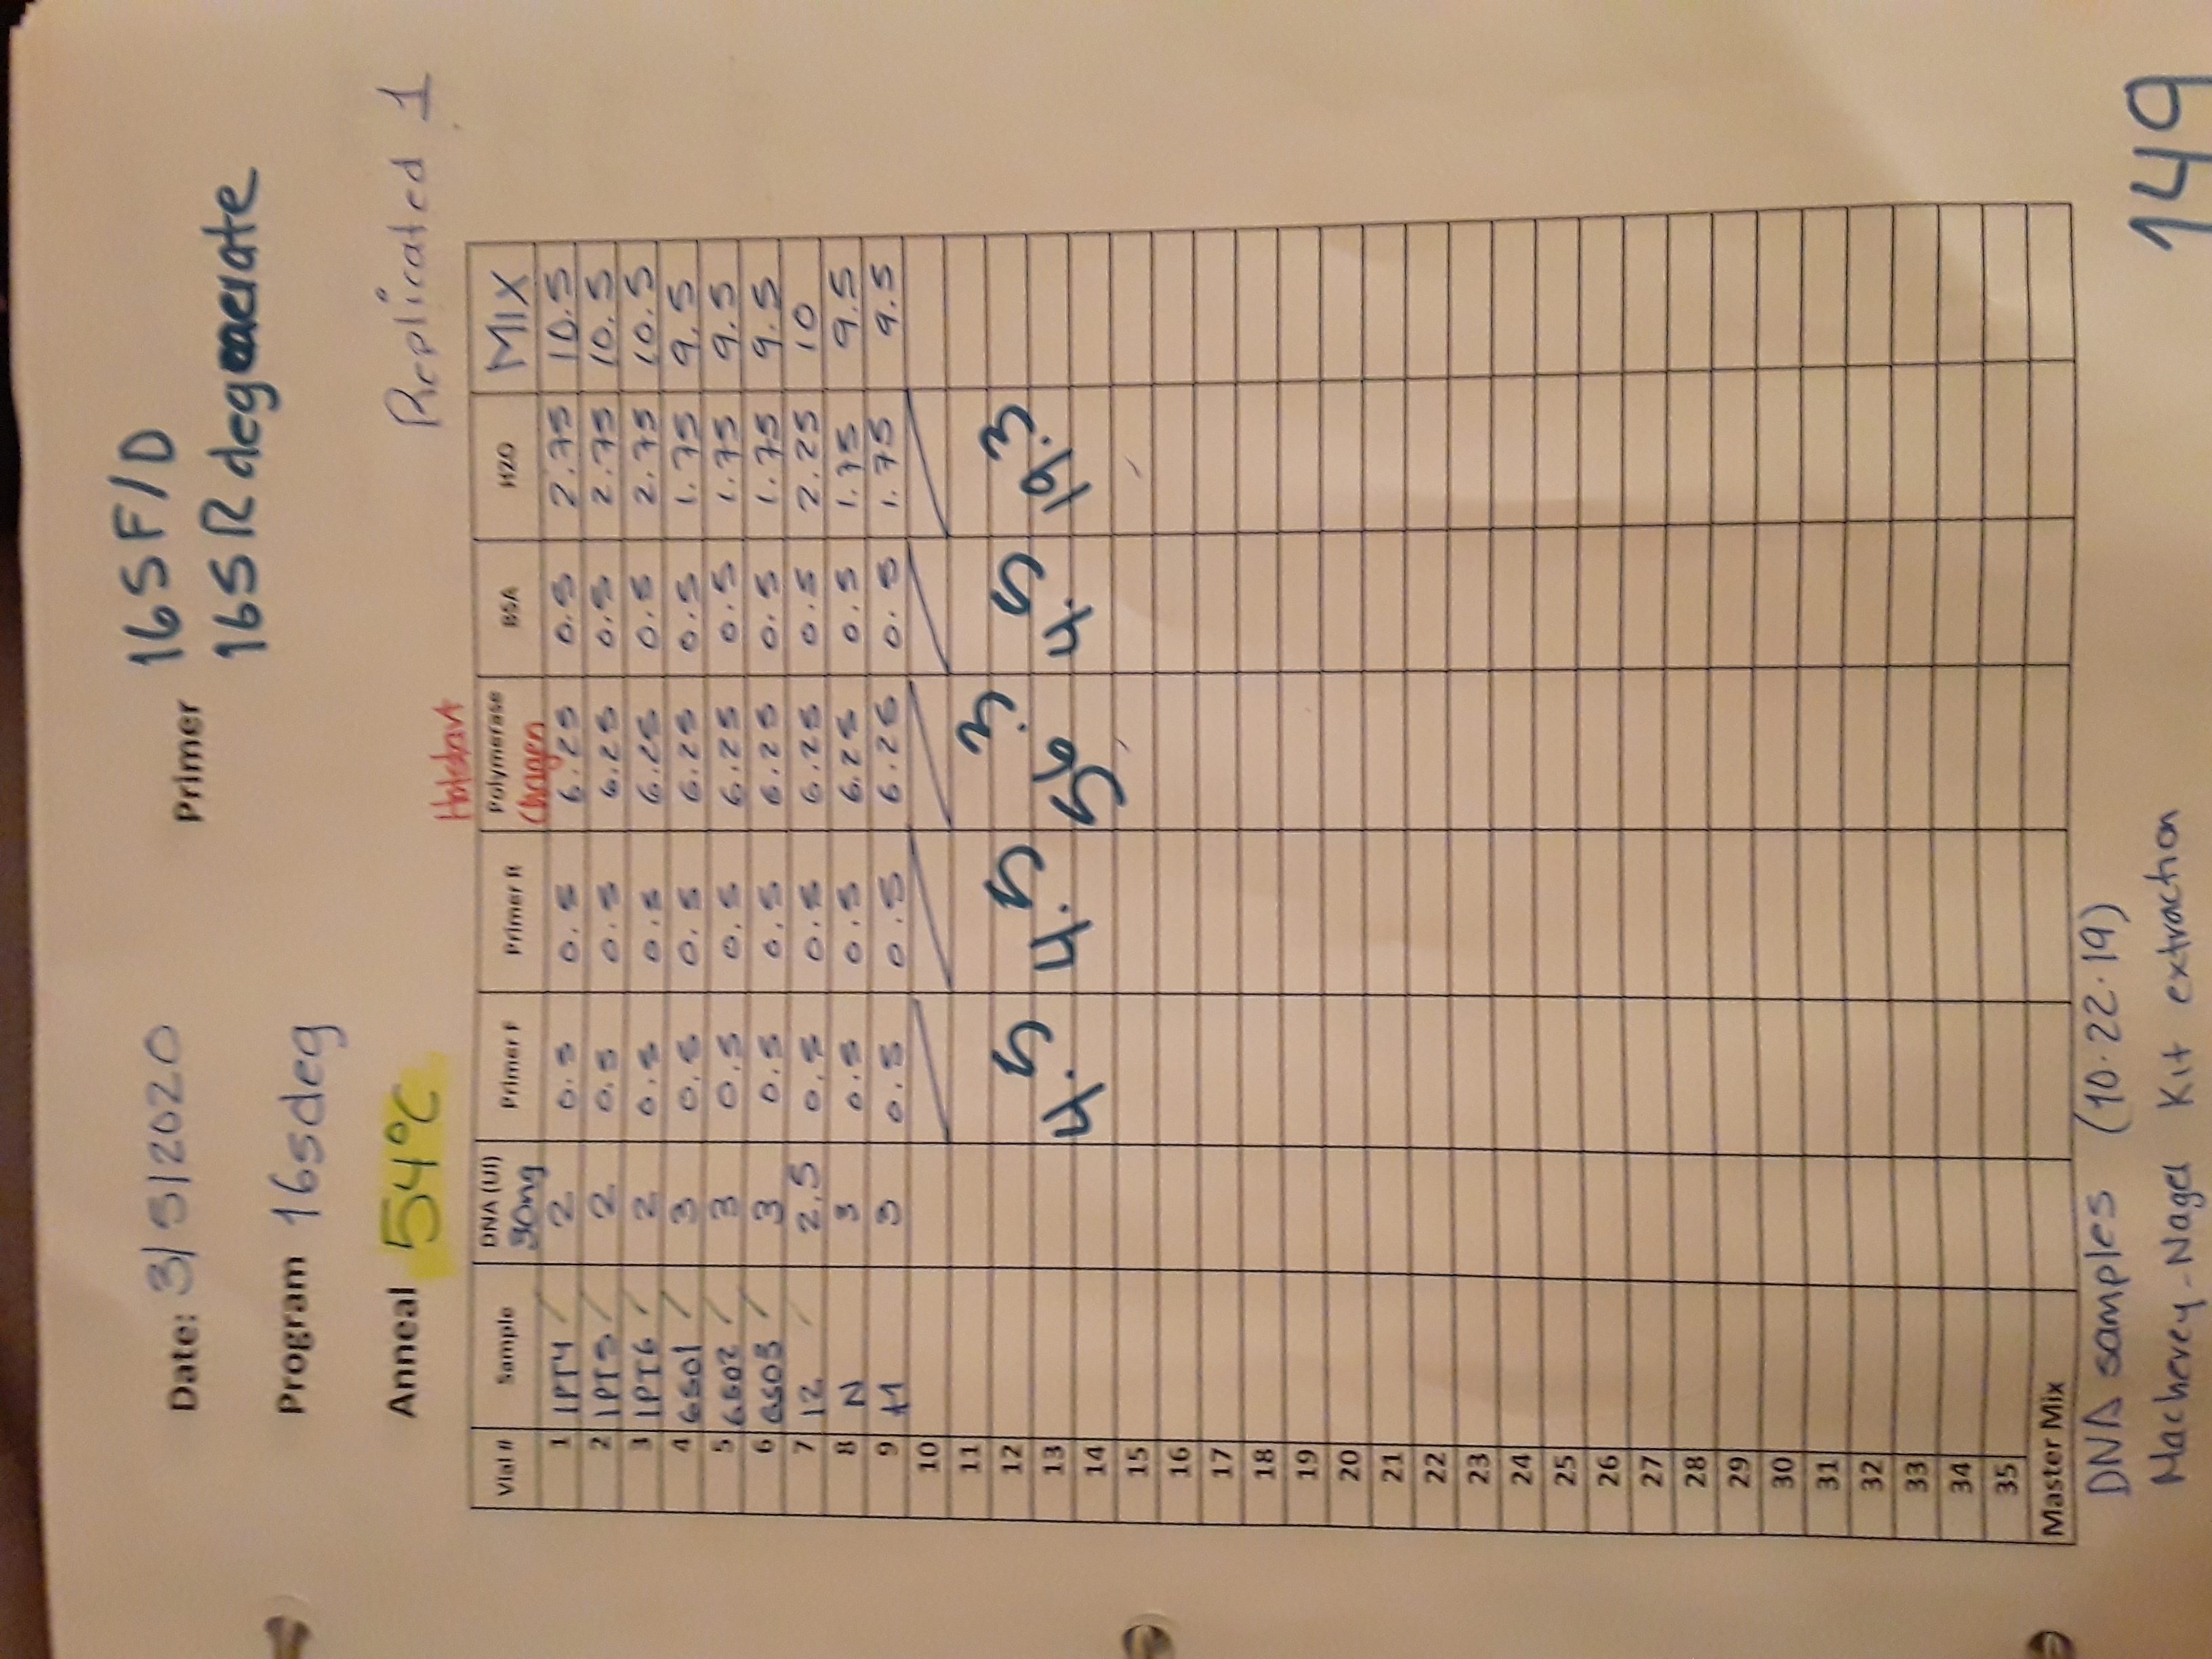 Date: 3/5/2020 Primer 16S F/D
16S R degenerate
Program 16sdeg
Anneal 54°C Replicated 1
Hotstart
Vial # Sample DNA (Ul) Primer F Primer R Polymerase BSA H2O MIX
30ng
1 1PT4 2 0.5 0.5 6.25 0.5 2.75 10.5
2 1PT5 2 0.5 0.5 6.25 0.5 2.75 10.5
3 1PT6 2 0.5 0.5 6.25 0.5 2.75 10.5
4 6S01 3 0.5 0.5 6.25 0.5 1.75 9.5
5 6S02 3 0.5 0.5 6.25 0.5 1.75 9.5
6 6S03 3 0.5 0.5 6.25 0.5 1.75 9.5
7 12 2.5 0.5 0.5 6.25 0.5 2.25 10
8 N 3 0.5 0.5 6.25 0.5 1.75 9.5
9 3 0.5 0.5 6.25 0.5 1.75 9.5
10
11
12
13
4.5 4.5 56.3 4.5 19.3
14
15
16
17
18
19
20
21
22
23
24
25
26
27
28
29
30
31
32
33
34
35
Master Mix
DNA samples (10.22.19)
Macherey-Nagel Kit extraction
149